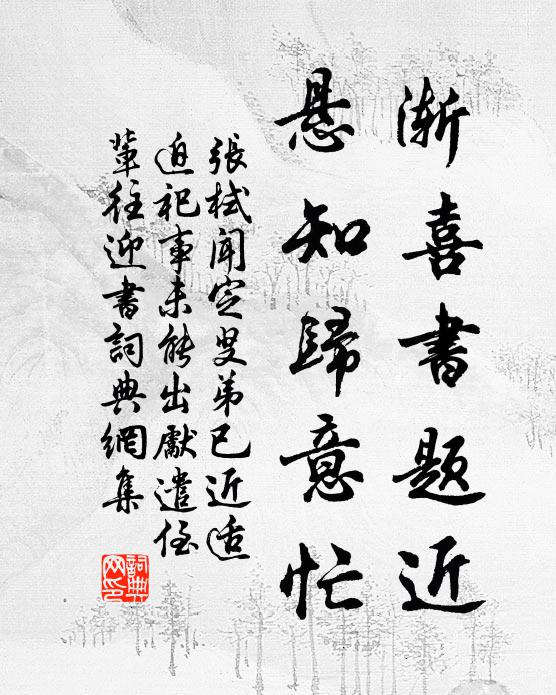 渐喜書题近
悬知歸意忙
張栻聞定叟弟已近适
迫祀事未能出獻遣侄
輩往迎書詞典網集
詞典
网印